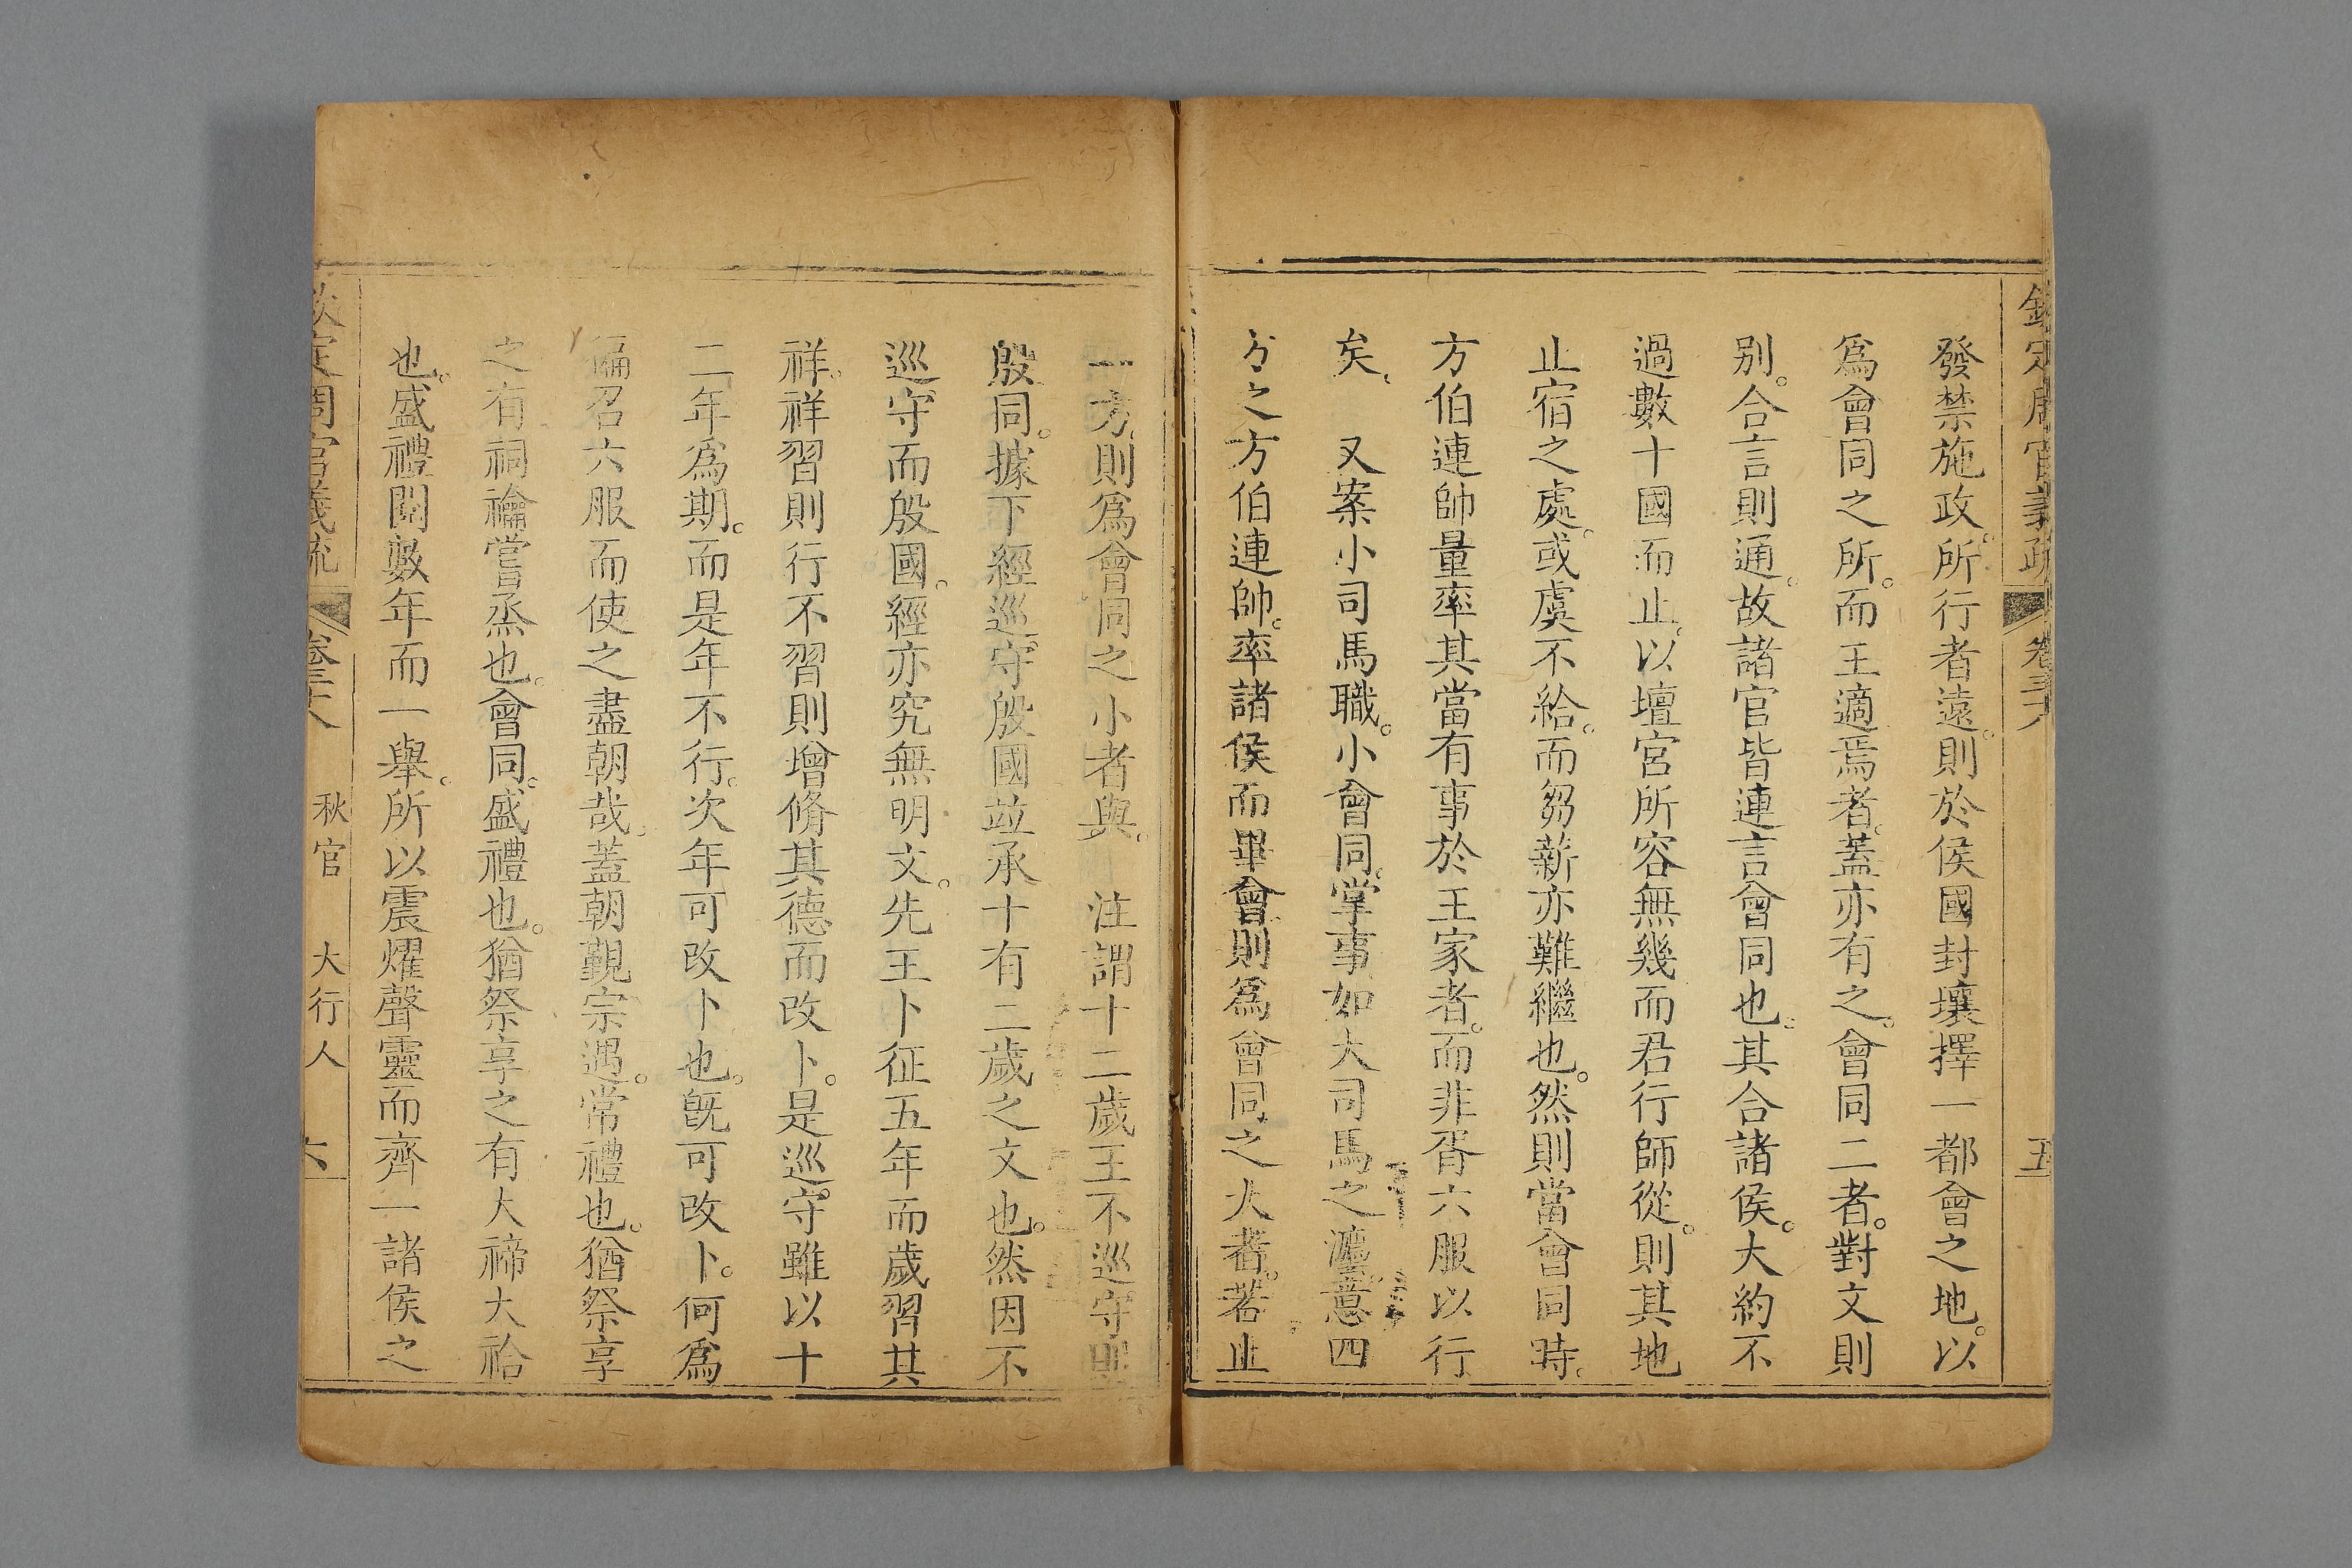 欽定周官義疏 卷三十八 五
發禁施政。所行者遠。則於侯國封壤擇一都會之地。以
爲會同之所。而王適焉者。蓋亦有之。會同二者。對文則
別。合言則通。故諸官皆連言會同也。其合諸侯。大約不
過數十國而止。以壇宮所容無幾。而君行師從。則其地
止宿之處。或虞不給。而芻薪亦難繼也。然則當會同時。
方伯連帥量率其當有事於王家者。而非胥六服以行
矣。 又案小司馬職。小會同。掌事如大司馬之灋。意四
方之方伯連帥。率諸侯而畢會。則爲會同之大者。若止
一方。則爲會同之小者與。 注謂十二歲王不巡守則
殷同。據下經巡守殷國竝承十有二歲之文也。然因不
巡守而殷國。經亦究無明文。先王卜征五年而歲習其
祥。祥習則行。不習則增脩其德而改卜。是巡守雖以十
二年爲期。而是年不行。次年可改卜也。旣可改卜。何爲
徧召六服而使之盡朝哉。蓋朝覲宗遇。常禮也。猶祭享
之有祠禴嘗烝也。會同。盛禮也。猶祭享之有大禘大祫
也。盛禮閱數年而一舉。所以震燿聲靈而齊一諸侯之
欽定周官義疏 卷三十八 秋官 大行人 六